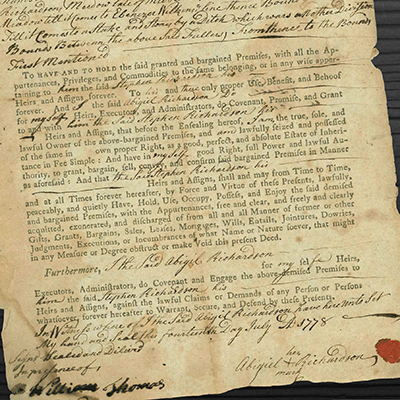 Richardson Medow
it Comes to Ebenezer
till it Comes to a Stake and Stons by a ditch which was a
Bounds Between the above Said Fallows from thence to the Bounds
First Mentiond
TO HAVE AND TO HOLD the said granted and bargained Premises, with all the Ap-
purtenances, Privileges, and Commodities to the same belonging, or in any wise apper-
taining to him the said Stephen Richardson his
Heirs and Assigns forever. To his and true only proper Use, Benefit, and Behoof
forever. And I the said Abigiel Richardson for
my self, Heirs, Executors, and Administrators, do Covenant, Promise, and Grant
to and with him the Said Stephen Richardson his
Heirs and Assigns, that before the Ensealing hereof, I am the true, sole, and
lawful Owner of the above-bargained Premises, and am lawfully seized and possessed
of the same in my own proper Right, as a good, perfect, and absolute Estate of Inheri-
tance in Fee Simple: And have in my self good Right, full Power and lawful Au-
thority, to grant, bargain, sell, convey, and confirm said bargained Premises in Manner
as aforesaid: And that the said Stephen Richardson his
Heirs and Assigns, shall and may from Time to Time,
and at all Times forever hereafter, by Force and Virtue of these Presents, lawfully,
peaceably, and quietly Have, Hold, Use, Occupy, Possess, and Enjoy the said demised
and bargained Premises, with the Appurtenances, free and clear, and freely and clearly
acquitted, exonerated, and discharged of from all and all Manner of former or other
Gifts, Grants, Bargains, Sales, Leases, Mortgages, Wills, Entails, Jointures, Dowries,
Judgments, Executions, or Incumbrances of what Name or Nature soever, that might
in any Measure or Degree obstruct or make Void this present Deed.
Furthermore, I the Said Abigiel Richardson
for my self Heirs,
Executors, Administrators, do Covenant and Engage the above demised Premises to
him the said Stephen Richardson his
Heirs and Assigns, against the lawful Claims or Demands of any Person or Persons
whatsoever, forever hereafter to Warrant, Secure, and Defend by these Presents.
In Witness whereof I the Said Abigiel Richardson have here unto Set
My hand and Seal this fourteenth Day July AD 1778
Signd Sealed and Dilivd
In presance of
William Thomas
her
Abigiel + Richardson
mark